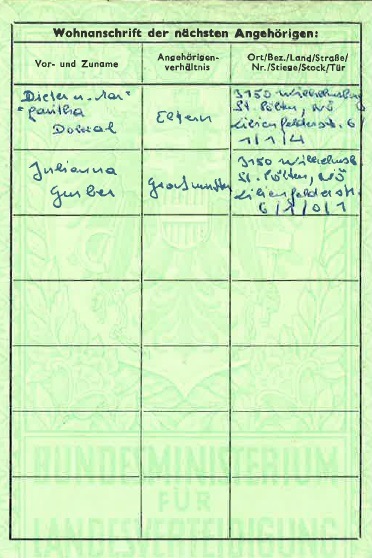 Wohnanschrift der nächsten Angehörigen:
Vor- und Zuname
Angehörigen-
verhältnis
Ort/Bez./Land/Straße/
Nr./Stiege/Stock/Tür
Dieter u. Mar-
garitha
Eltern
3150 Wilhelmsburg
St. Pölten, NÖ
Lilienfelderstr. 6/
1/1/4
Julianna
Gruber
Großmutter
3150 Wilhelmsb
St. Pölten, NÖ
Lilienfelderstr.
6/1/0/1
BUNDESMINISTERIUM
FÜR
LANDESVERTEIDIGUNG